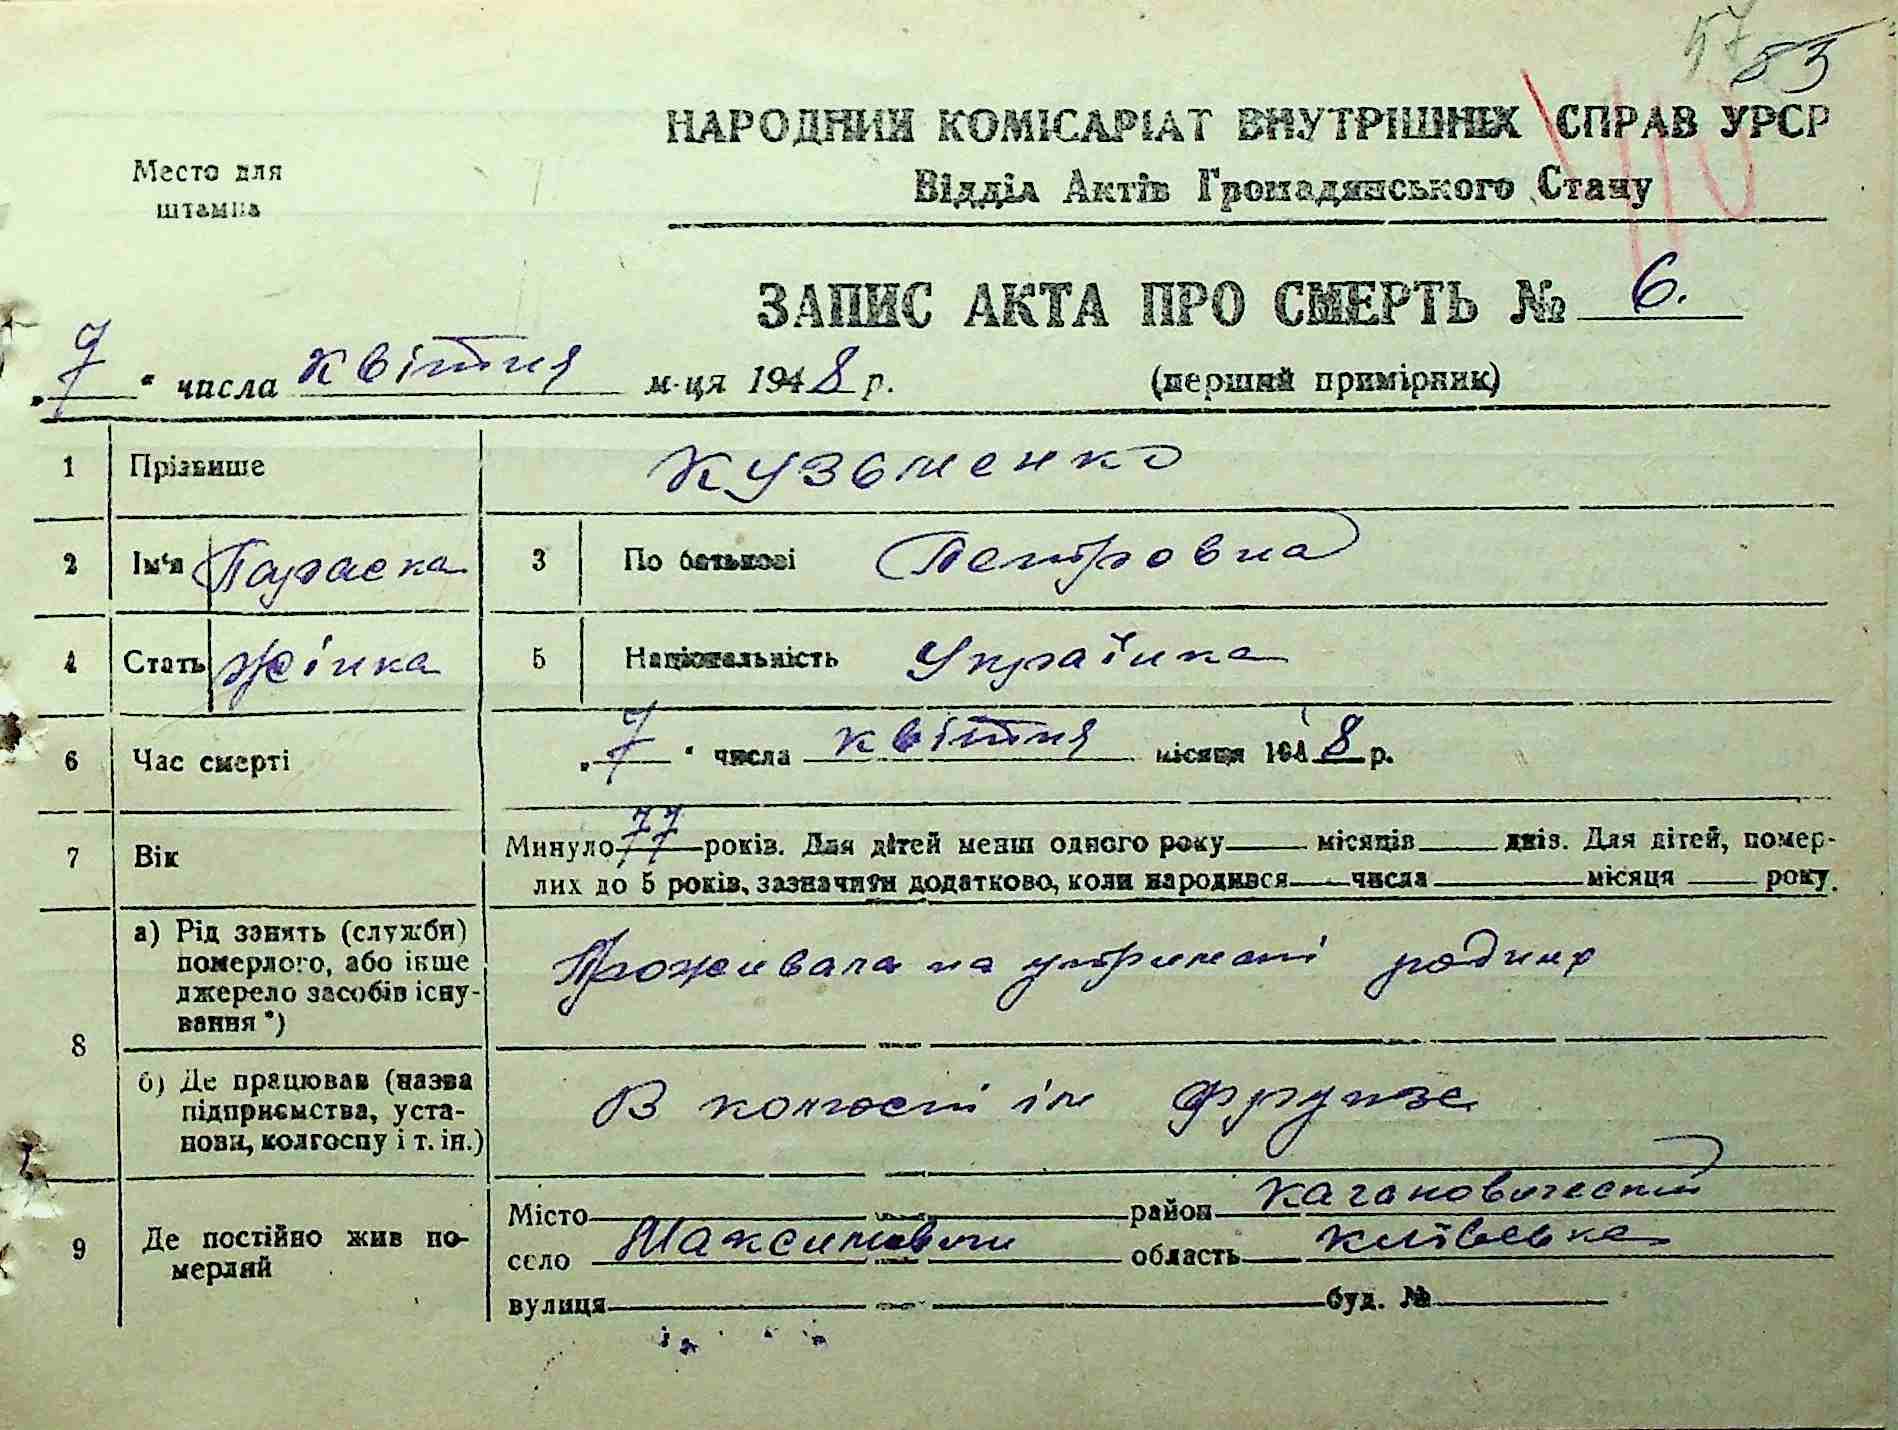 57
83
НАРОДНИЙ КОМІСАРІАТ ВНУТРІШНІХ СПРАВ УРСР
Место для
штампа
Відділ Актів Громадянського Стану
ЗАПИС АКТА ПРО СМЕРТЬ № 6.
„7“ числа квітня м-ця 1948 р.
(перший примірник)
1 Прізвище Кузьменко
2 Ім'я Параска 3 По батькові Петровна
4 Стать жінка 5 Національність Українка
6 Час смерті „7“ числа квітня місяця 1948 р.
7 Вік Минуло 77 років. Для дітей менш одного року місяців днів. Для дітей, помер-
лих до 5 років, зазначити додатково, коли народився числа місяця року.
8 а) Рід занять (служби)
померлого, або інше
джерело засобів існу-
вання *)
Проживала на утримані родини
б) Де працював (назва
підприємства, уста-
нови, колгоспу і т. ін.)
В колгоспі ім Фрунзе
9 Де постійно жив по-
мерлий
Місто район Кагановический
село Максимовичи область Київська
вулиця буд. №